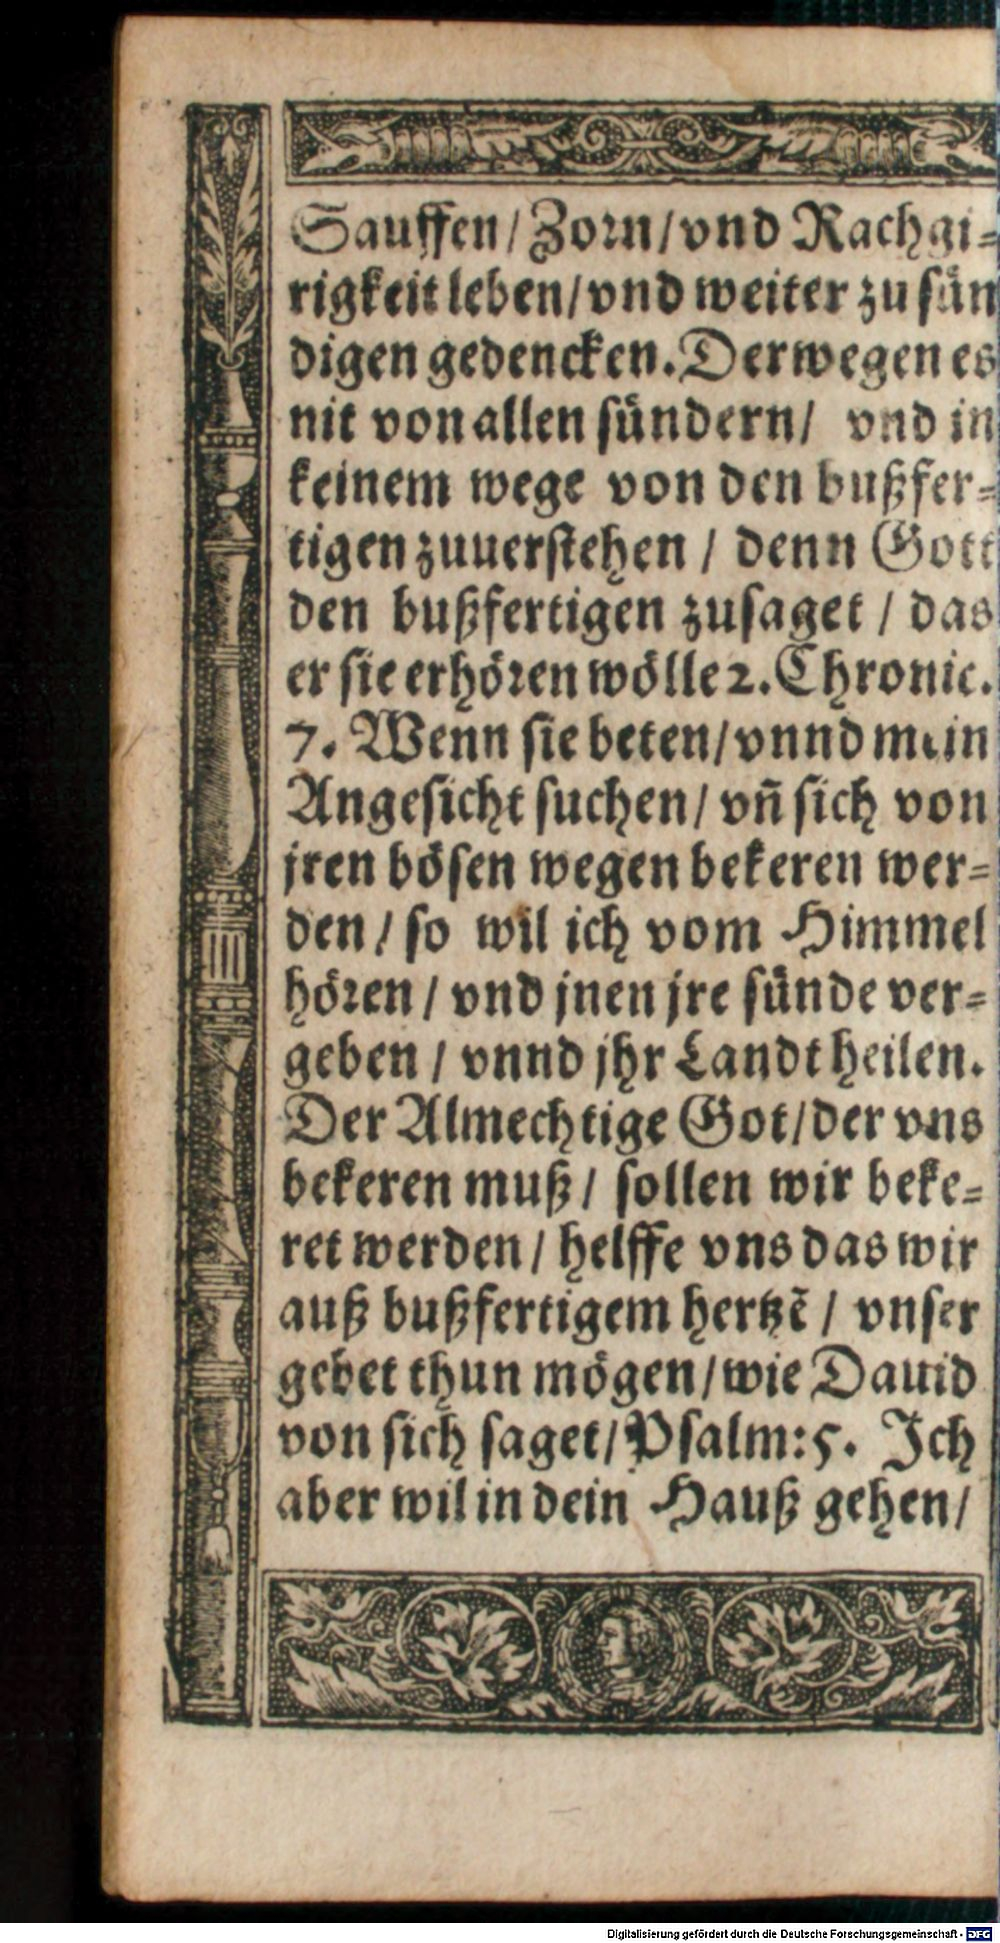 Sauffen / Zorn / vnd Rachgi-
rigkeit leben / vnd weiter zu sün
digen gedencken. Derwegen es
nit von allen sündern / vnd in
keinem wege von den bußfer-
tigen zuuerstehen / denn Gott
den bußfertigen zusaget / das
er sie erhören wölle 2. Chronic.
7. Wenn sie beten / vnnd mein
Angesicht suchen / vñ sich von
jren bösen wegen bekeren wer-
den / so wil ich vom Himmel
hören / vnd jnen jre sünde ver-
geben / vnnd jhr Landt heilen.
Der Almechtige Got / der vns
bekeren muß / sollen wir beke-
ret werden / helffe vns das wir
auß bußfertigem hertzẽ / vnser
gebet thun mögen / wie Dauid
von sich saget / Psalm: 5. Ich
aber wil in dein Hauß gehen /
Digitalisierung gefördert durch die Deutsche Forschungsgemeinschaft - DFG